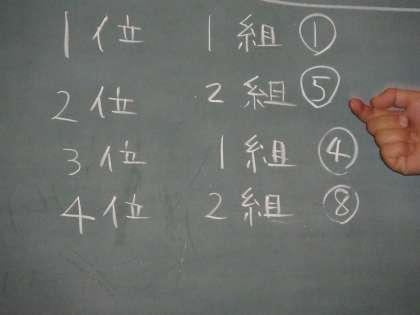 1位 1組 ①
2位 2組 ⑤
3位 1組 ④
4位 2組 ⑧